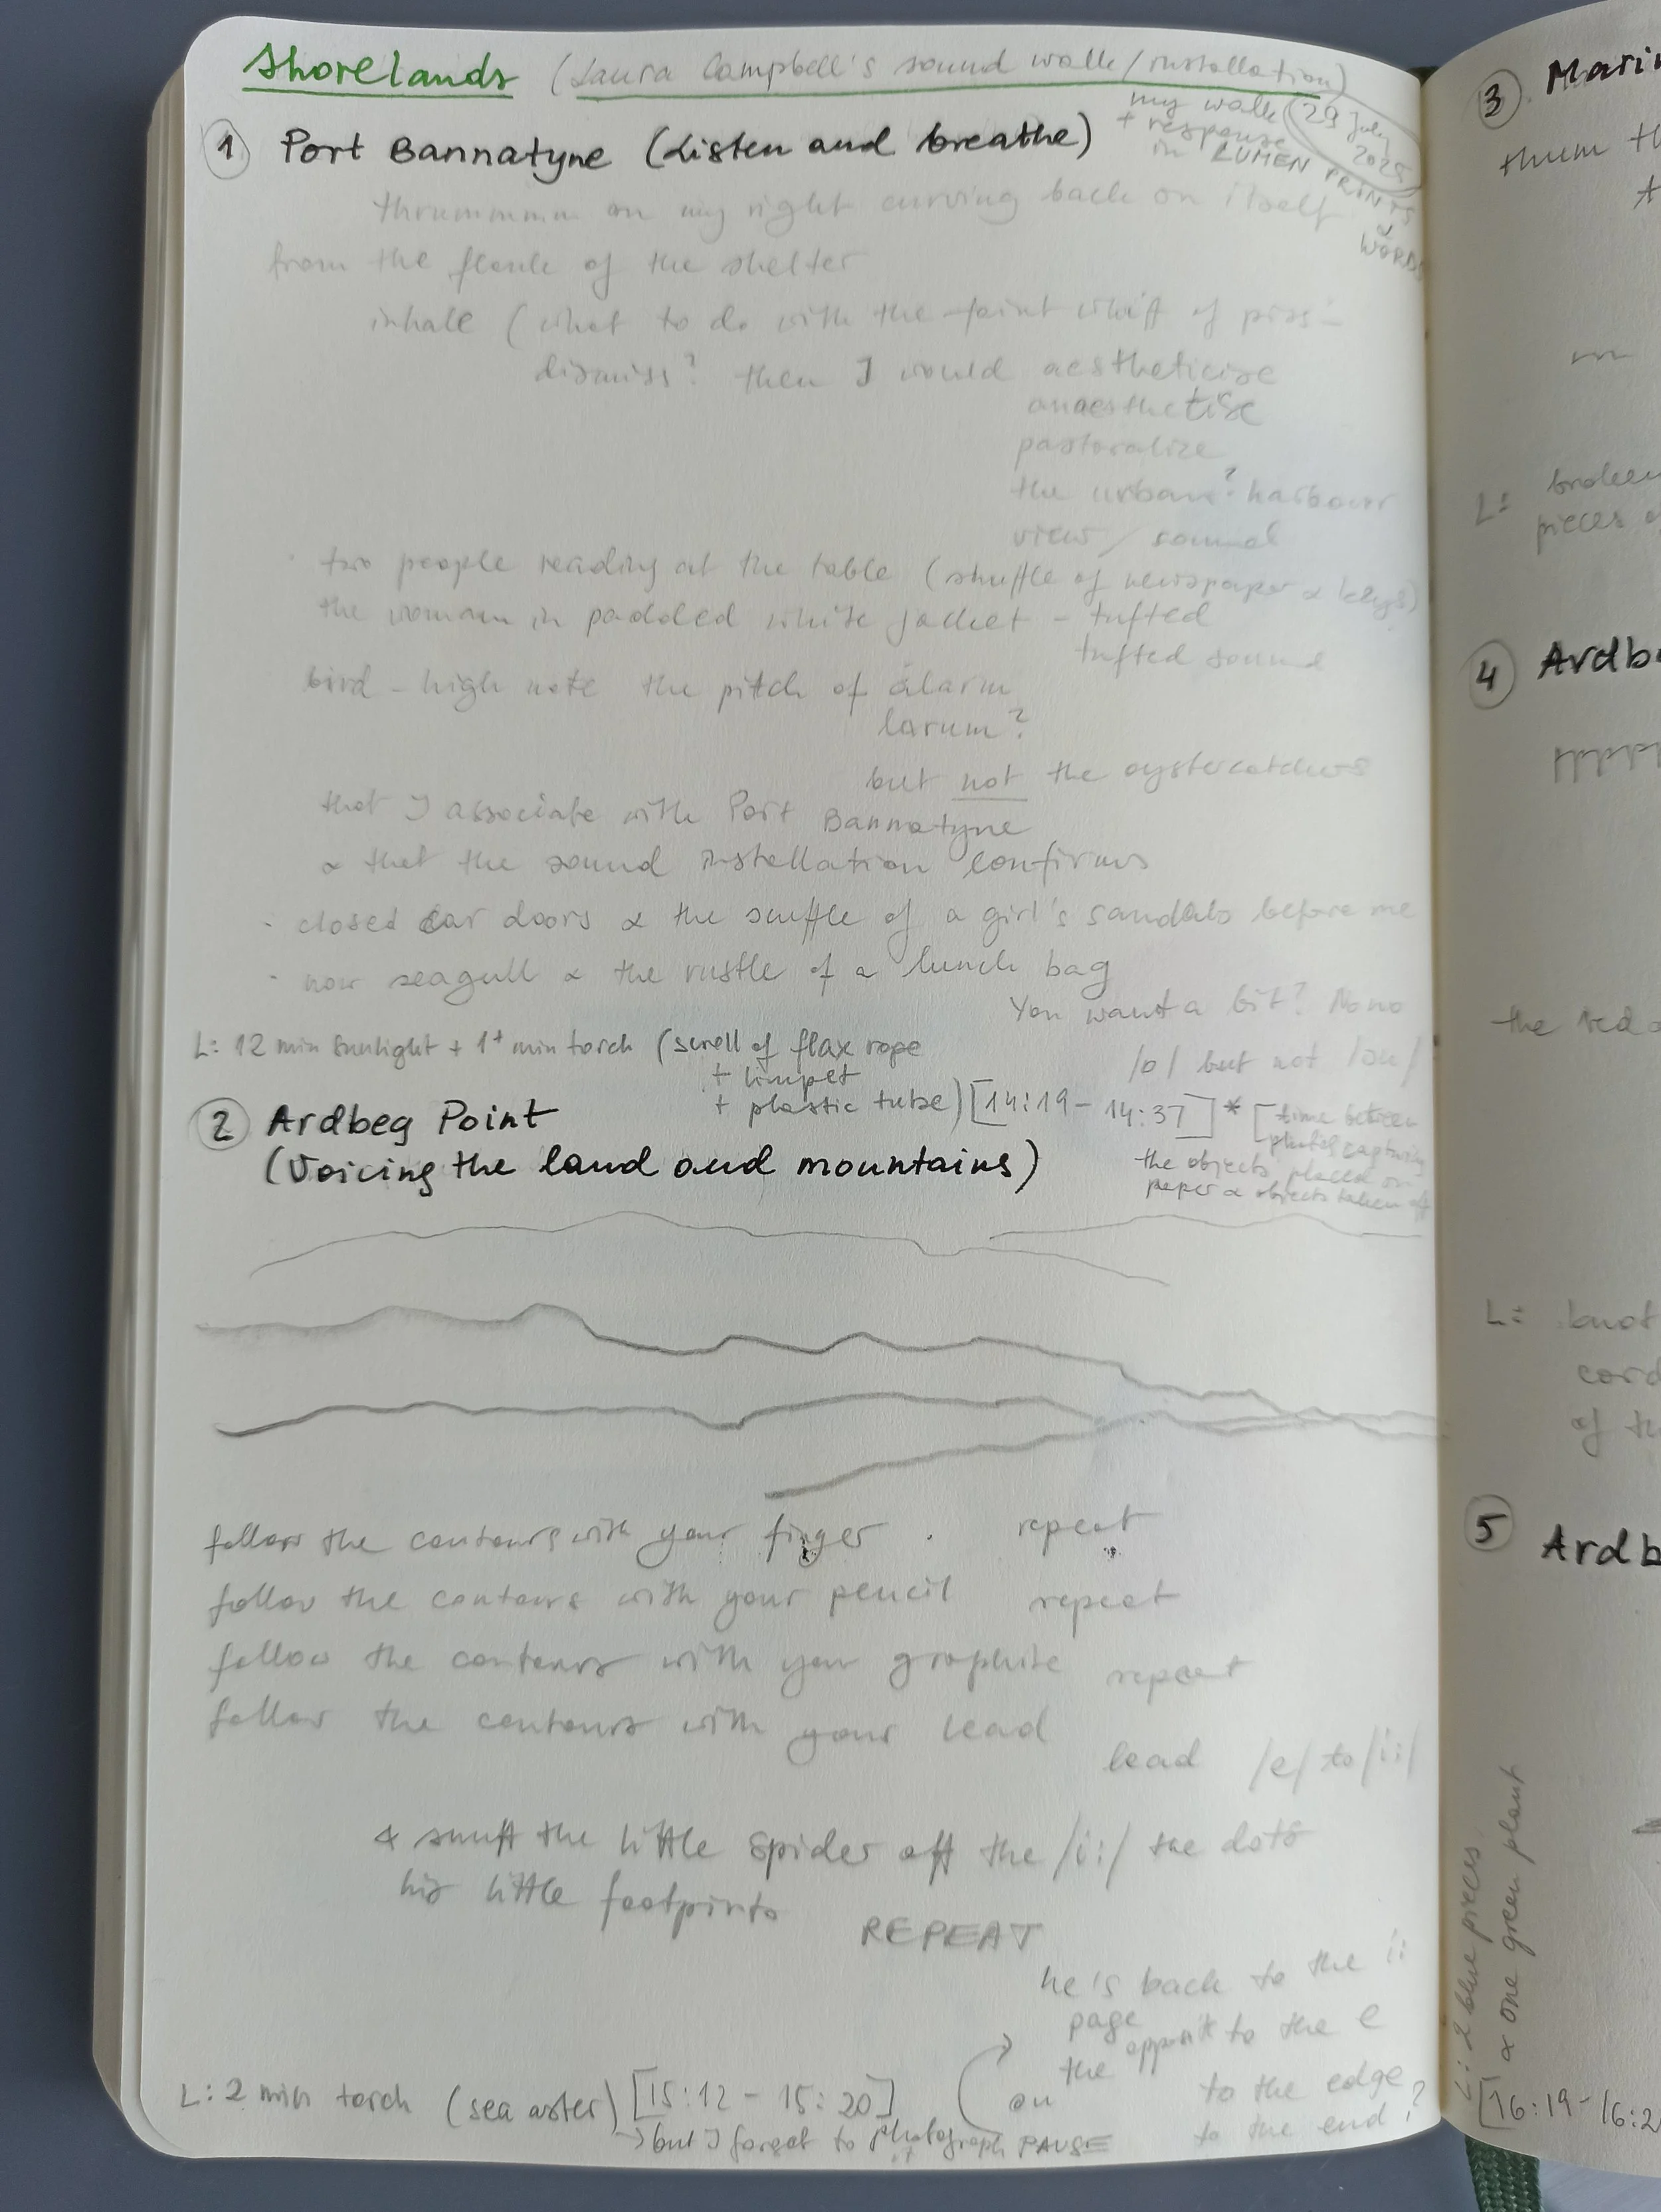 Shorelands (Laura Campbell's sound walk/installation)
my walk
+ response
in LUMEN PRINTS
&
WORDS
29 July
2025
1 Port Bannatyne (Listen and breathe)
thrummmm on my right curving back on itself
from the flank of the shelter
inhale (what to do with the faint whiff of piss –
dismiss? then I would aestheticise
anaesthetise
pastoralize
the urban? harbour
view / sound
· two people reading at the table (shuffle of newspaper & keys)
the woman in padded white jacket – tufted
tufted sound
bird – high note the pitch of alarm
larum?
but not the oystercatchers
that I associate with Port Bannatyne
& that the sound installation confirms
- closed car doors & the scuffle of a girl's sandals before me
- now seagull & the rustle of a lunch bag
You want a bit? No no
/o/ but not /ou/
L: 12 min sunlight + 1+ min torch (scroll of flax rope
+ limpet
+ plastic tube) [14:19 – 14:37] * [time between
photos capturing
the objects placed on
paper & objects taken off
2 Ardbeg Point
(Voicing the land and mountains)
follow the contours with your finger . repeat
follow the contours with your pencil repeat
follow the contours with your graphite repeat
follow the contours with your lead
lead /e/ to /i:/
& snuff the little spider off the /i:/ the dots
his little footprints
REPEAT
he's back to the i:
page
opposit to the e
the
on
to the edge
to the end?
L: 2 min torch (sea aster) [15:12 – 15:20]
→ but I forgot to photograph PAUSE
it
3 Marin
thum th
L: broken
pieces o
4 Ardbe
pppp
the red
L: knot
cord
of th
5 Ardb
L: 2 blue pieces
& one green plant
[16:19 – 16:2